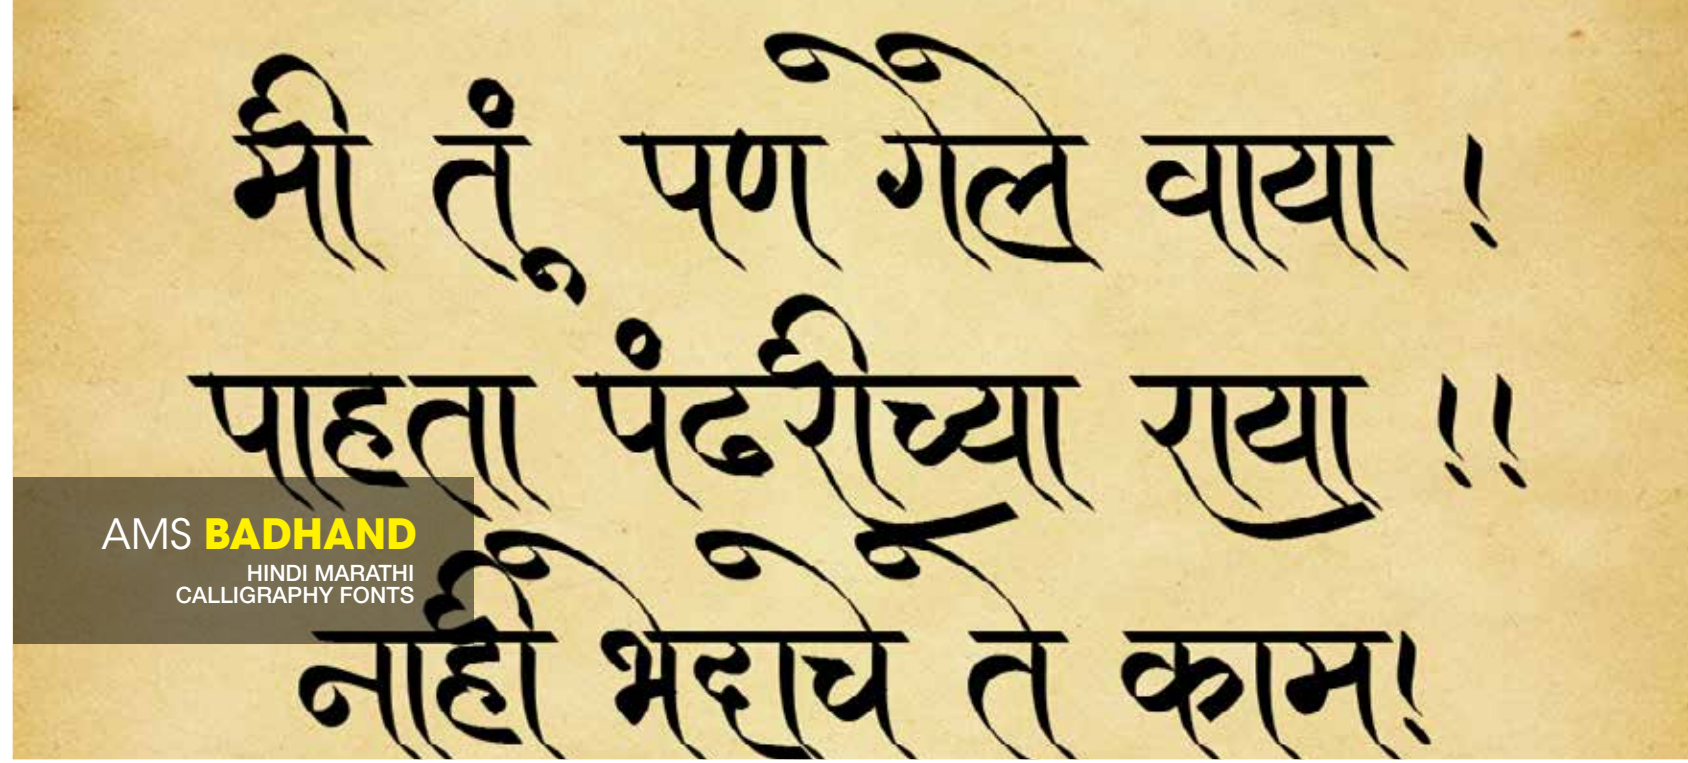 मी तूं पण गेले वाया !
पाहता पंढरीच्या राया !!
AMS BADHAND
HINDI MARATHI
CALLIGRAPHY FONTS
नाही भेदाचे ते काम!